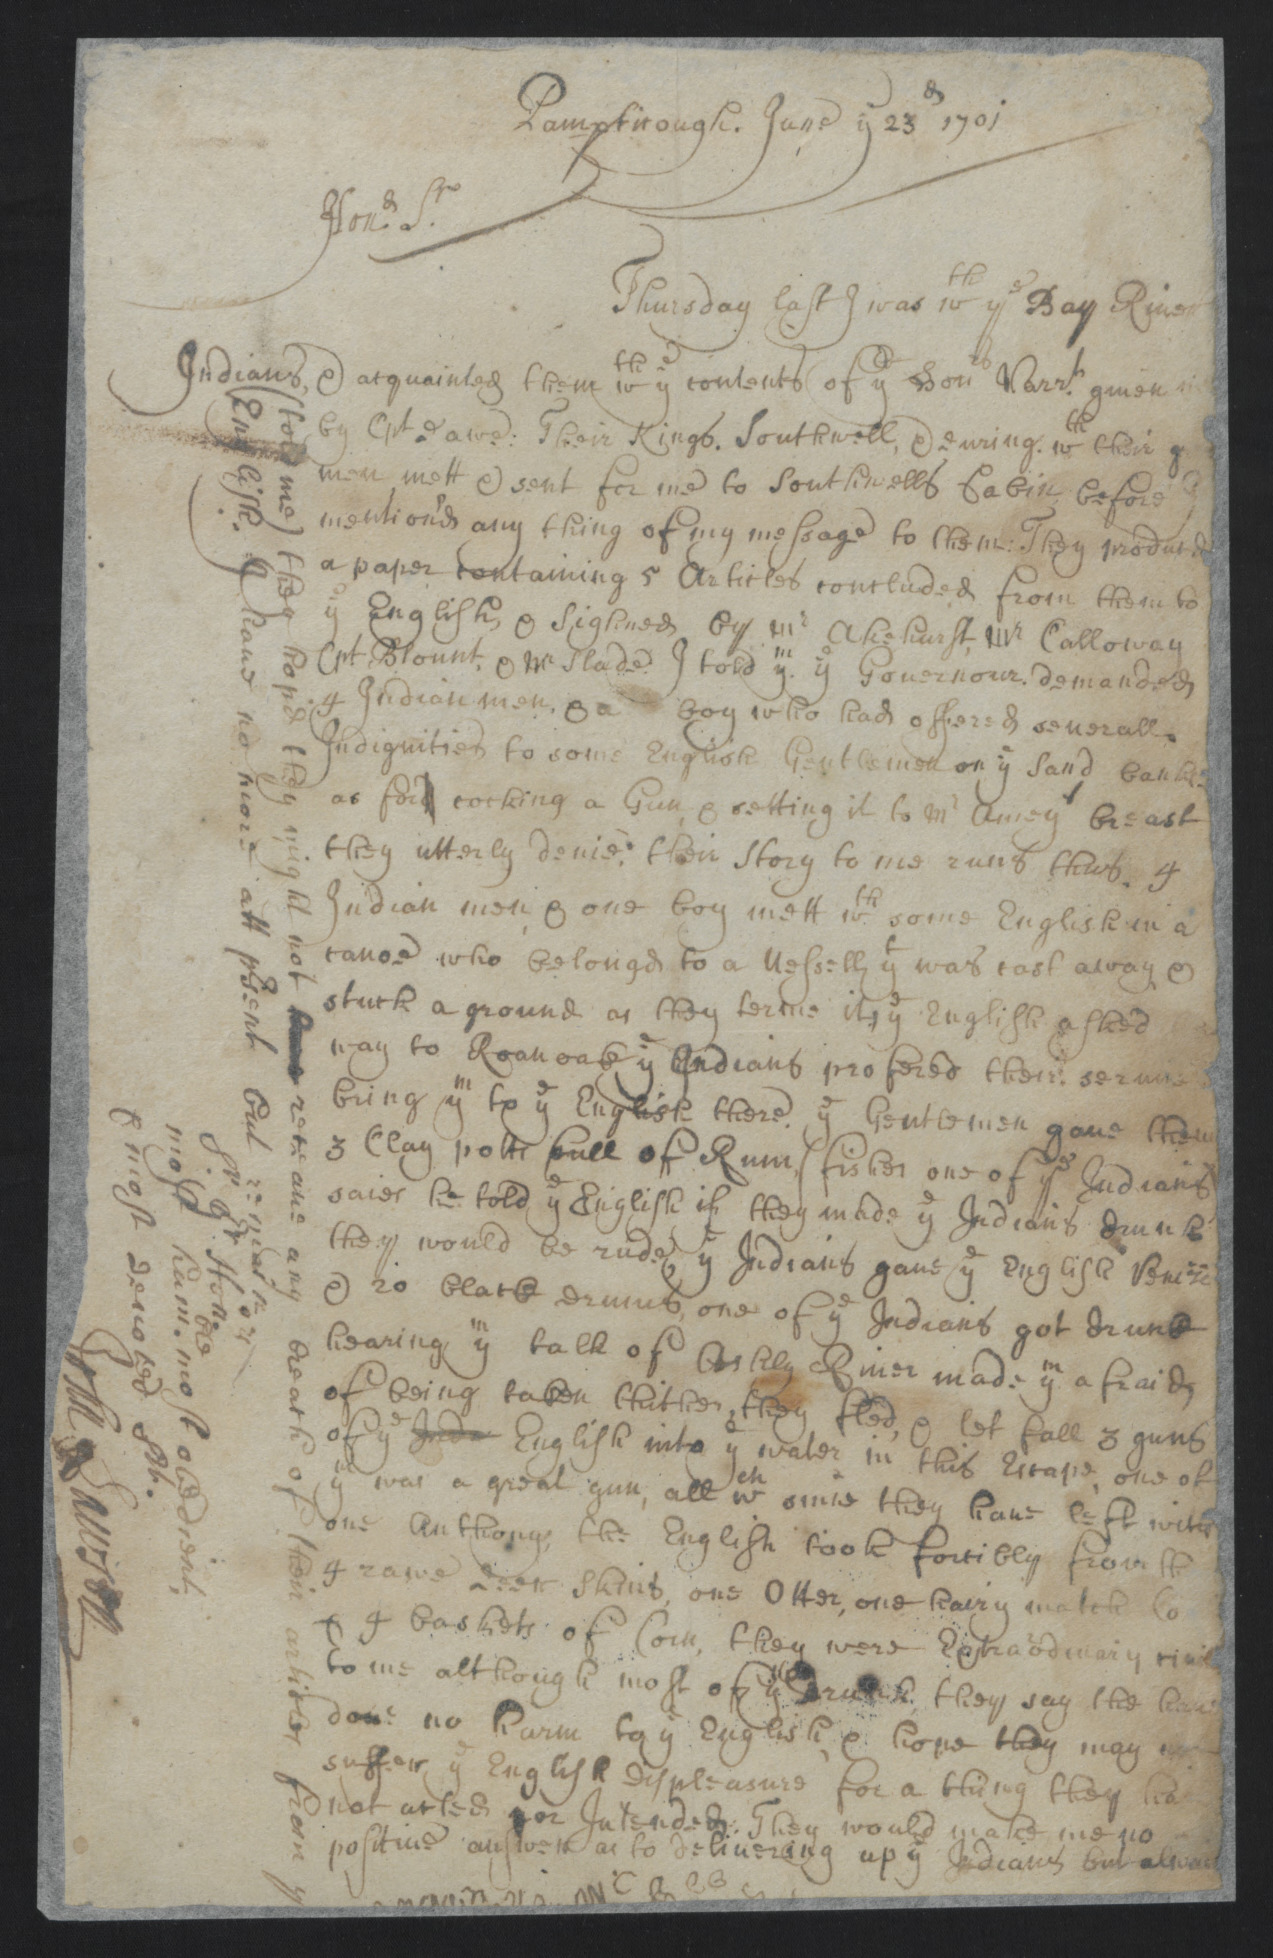 Pampticough. June ye 23d 1701
Hond. Sr.
Thursday last I was wth ye Bay River
Indians, & acquainted them wth ye contents of ye Honbs Warrt. given
by Cpt Dawe: Their Kings. Southwell, & Dewring. wth their
men mett & sent for me to Southwells Cabin before I
mention'd any thing of my message to them: They produced
a paper containing 5 Articles concluded from them to
ye English, & Sighned by Mr Akehurst, Mr Calloway
Cpt Blount, & Mr Slade. I told ym. ye Governour. demanded
4 Indian men, & a boy who had offered severall
Indignities to some English Gentlemen on ye Sand banks
as for cocking a Gun, & setting it to Mr Ameys breast
they utterly denie. their Story to me runs thus. 4
Indian men, & one boy mett wth. some English in a
canoe who belongd to a Vessell yt was cast away &
stuck a ground as they terme it, ye English asked
way to Roanoak ye Indians profered their service
bring ym to ye English there. ye Gentlemen gave them
3 Clay potts full of Rum, fisher one of ye Indians
saies he told ye English if they made ye Indians drunk
they would be rude, ye Indians gave ye English
& 20 black drums, one of ye Indians got drunk
hearing ym talk of River made ym afraid
of being taken thither, they fled, & let fall 3 guns
of ye Inda English into ye water in this Escape, one of
ym was a great gun, all wch since they have left with
one Anthony, the English took forcibly from
4 rawe Deer Skins, one Otter, one hairy match
& 4 baskets of Corn, they were Extraordinary civil
to me although most of ym drunk, they say the have
done no harm to ye English, & hope they may
suffer ye English displeasure for a thing they
not acted nor Intended. They would make me no
positive answer as to delivering up ye Indians but
(told me) they hop'd they might not receave any breach of their articles from ye
English. I have no more att psent but remain
Sr. yr Honble
most hum. most obedient,
& most devoted St.
John Lawson